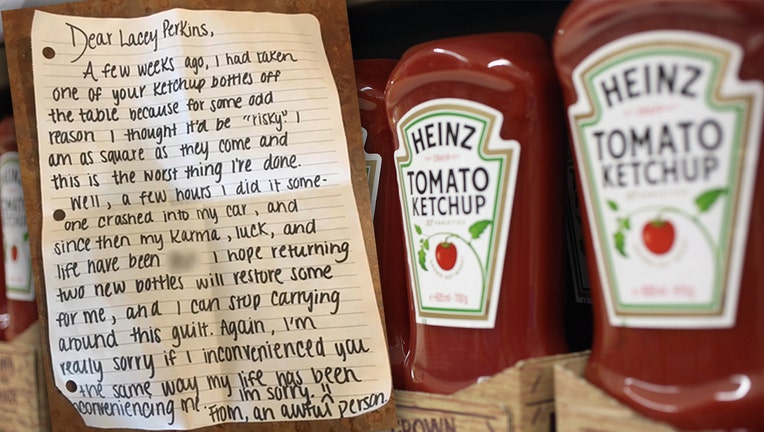 Dear Lacey Perkins,
A few weeks ago, I had taken
one of your ketchup bottles off
the table because for some odd
reason I thought it'd be "risky" I
am as square as they come and
this is the worst thing I've done.
Well, a few hours I did it some-
one crashed into my car, and
since then my karma, luck, and
life have been I hope returning
two new bottles will restore some
for me, and I can stop carrying
around this guilt. Again, I'm
really sorry if I inconvenienced you
the same way my life has been
inconveniencing me. I'm sorry!!
From, an awful person.
HEINZ
TOMATO
KETCHUP
HEINZ
TOMATO
KETCHUP
GROWN